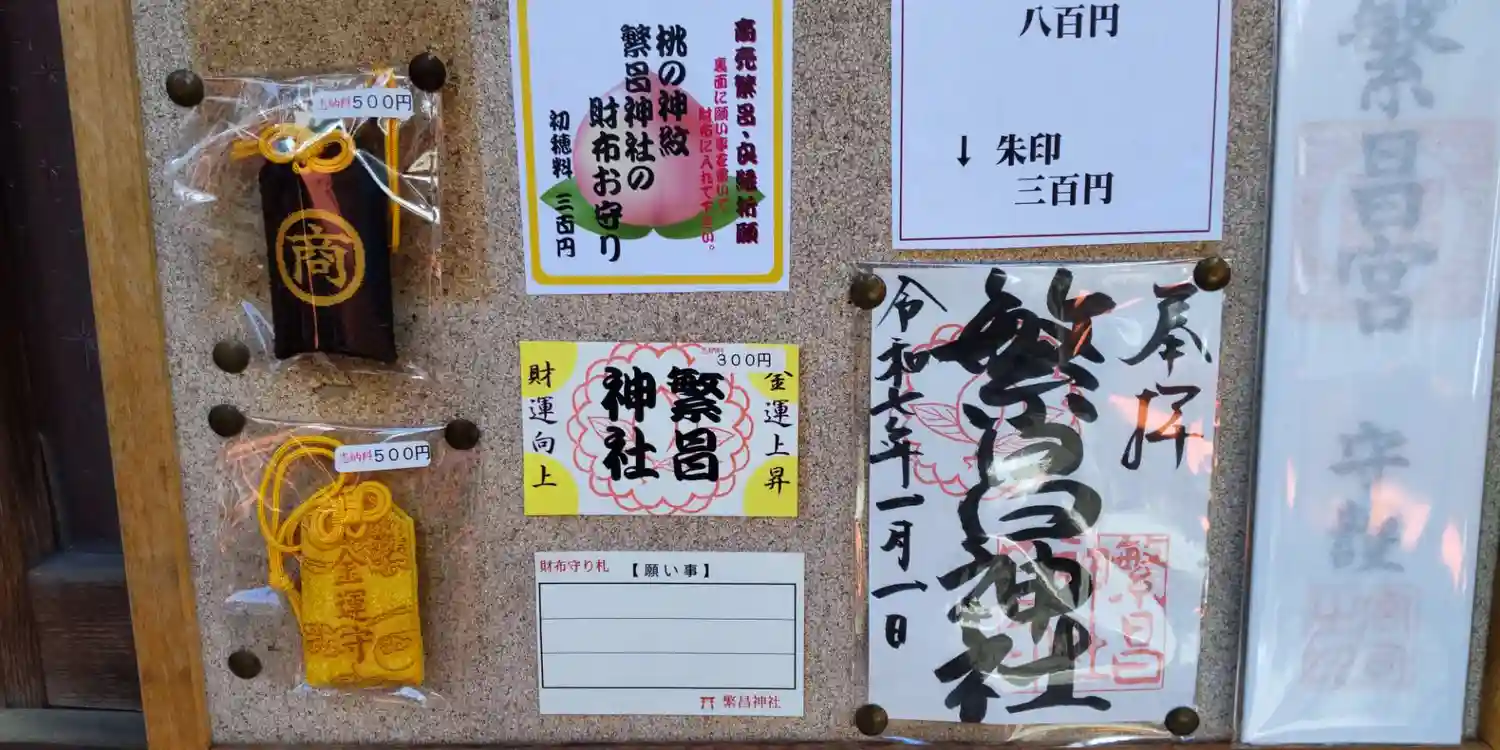 志納料500円
商
志納料500円
金運守
商売繁昌・良縁祈願
裏面に願い事を書いて
財布に入れて下さい。
桃の神紋
繁昌神社の
財布お守り
初穂料 三百円
300円
金運上昇
繁昌
神社
財運向上
財布守り札 【願い事】
繁昌神社
八百円
↓ 朱印
三百円
奉拝
繁昌神社
令和七年一月一日
繁昌
繁昌宮
守護